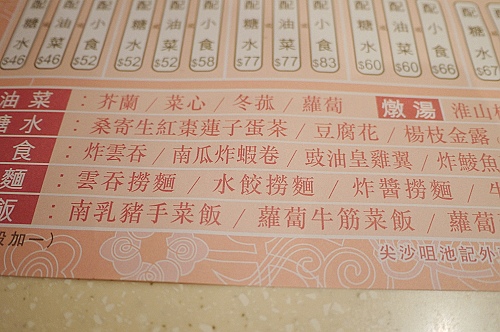 配 配油菜 配小食 配糖水 配油菜 配小食 配糖水 配油菜 配小食 配糖水 配油菜 配小食 配糖水
$46 $46 $58 $52 $52 $58 $77 $77 $83 $60 $60 $66 $67
油菜 : 芥蘭 / 菜心 / 冬菰 / 蘿蔔 燉湯 淮山
糖水 : 桑寄生紅棗蓮子蛋茶 / 豆腐花 / 楊枝金露
食 : 炸雲吞 / 南瓜炸蝦卷 / 豉油皇雞翼 / 炸鯪魚
麵 : 雲吞撈麵 / 水餃撈麵 / 炸醬撈麵 / 牛
飯 : 南乳豬手菜飯 / 蘿蔔牛筋菜飯 / 蘿蔔
設加一)
尖沙咀池記外